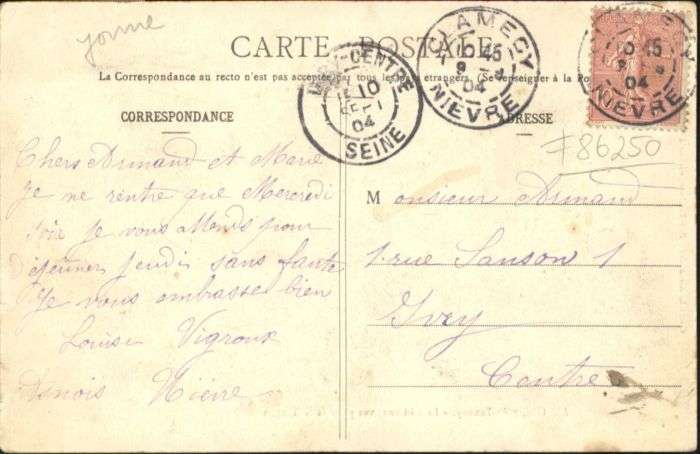 yonne
CARTE POSTALE
La Correspondance au recto n'est pas acceptée par tous les pays étrangers. (Se renseigner à la Po
CORRESPONDANCE
ADRESSE
CLAMECY
10 45
9
04
NIEVRE
IVRY-CENTRE
10
SEPT
04
SEINE
10 45
04
NIEVRE
F86250
Chers Armand et Marie
Je ne rentre que Mercredi
soir Je vous attends pour
déjeuner jeudi sans faute
Je vous embrasse bien
Louise Vigroux
Asnois Nièvre
Monsieur Armand
1 rue Sanson 1
Ivry
Centre